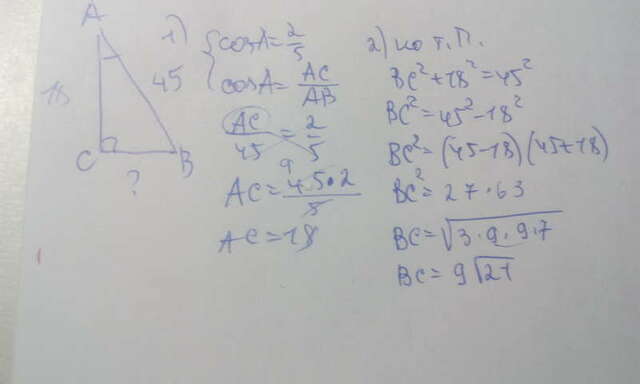 A
18
45
C
B
?
1) { cosA = 2/5
cosA = AC/AB
AC/45 = 2/5
9
AC = 45·2/5
AC = 18
2) по т.П.
BC² + 18² = 45²
BC² = 45² - 18²
BC² = (45-18)(45+18)
BC² = 27·63
BC = √3·9·9·7
BC = 9√21